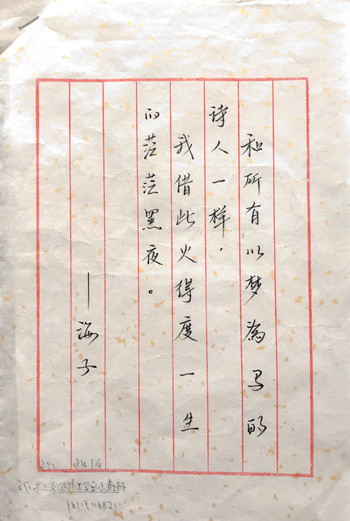 和所有以梦為马的
诗人一样，
我借此火得度一生
的茫茫黑夜。
——海子